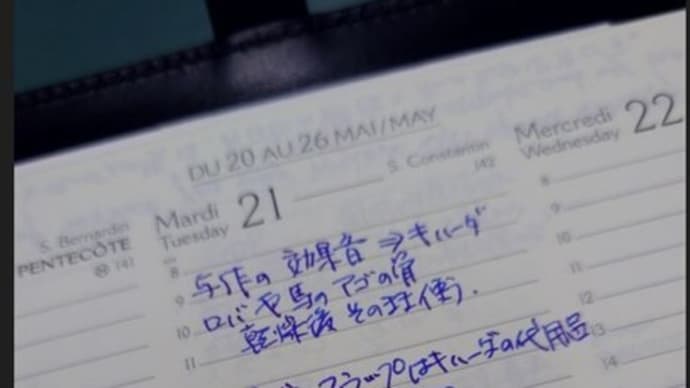 DU 20 AU 26 MAI/MAY
S. Bernardin
PENTECÔTE
141
Mardi
Tuesday
21
S. Constantin
142
Mercredi
Wednesday
22
8
9
10
11
8
9
10
11
12
13
14
与作の 効果音 ⇒ キハーダ
ロバや馬のアゴの骨
乾燥後 そのまま使う.
ラップはキハーダの代用品